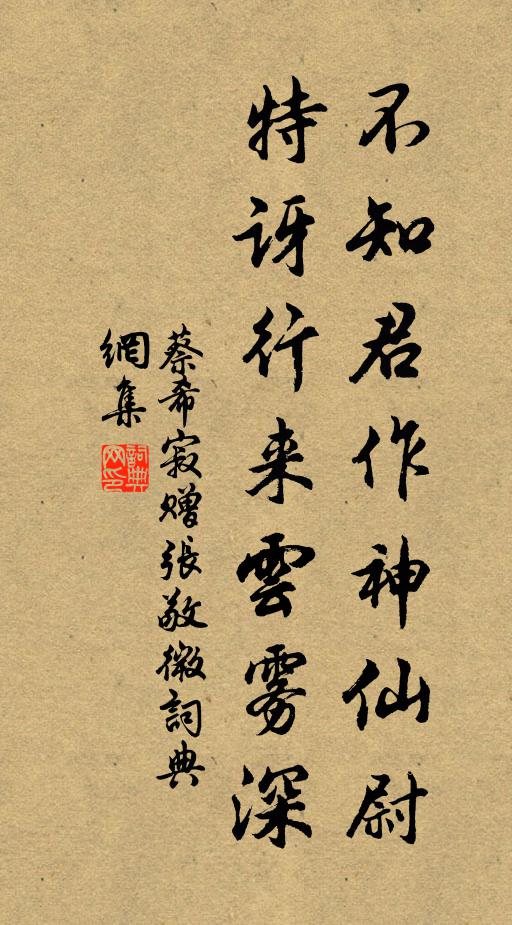 不知君作神仙尉
特訝行来雲雾深
蔡希寂贈張敬微詞典
網集
詞典網印